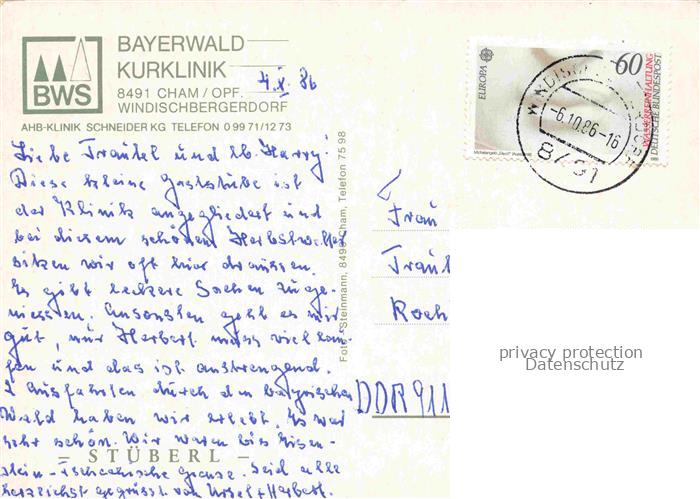 BWS
BAYERWALD
KURKLINIK
8491 CHAM / OPF.
WINDISCHBERGERDORF
AHB-KLINIK SCHNEIDER KG TELEFON 0 99 71/12 73
4.X. 86
Liebe Traudel und lb. Harry!
Diese kleine Gaststube ist
der Klinik angegliedert und
bei diesem schönen Herbstwetter
sitzen wir oft hier draussen.
Es gibt leckere Sachen zu ge-
niessen. Ansonsten geht es mir
gut, nur Herbert muss viel lau-
fen und das ist anstrengend.
2 Ausfahrten durch den bayrischen
Wald haben wir erlebt. Es war
sehr schön. Wir waren bis Eisen-
stein - Tschechische Grenze. Seid alle
herzlichst gegrüsst von Ursel + Herbert.
– STÜBERL –
Foto: Steinmann, 8490 Cham, Telefon 75 98
EUROPA
60
WASSERREINHALTUNG
DEUTSCHE BUNDESPOST
-6.10.86-16
8491
Frau
Rech
DDR 911
privacy protection
Datenschutz